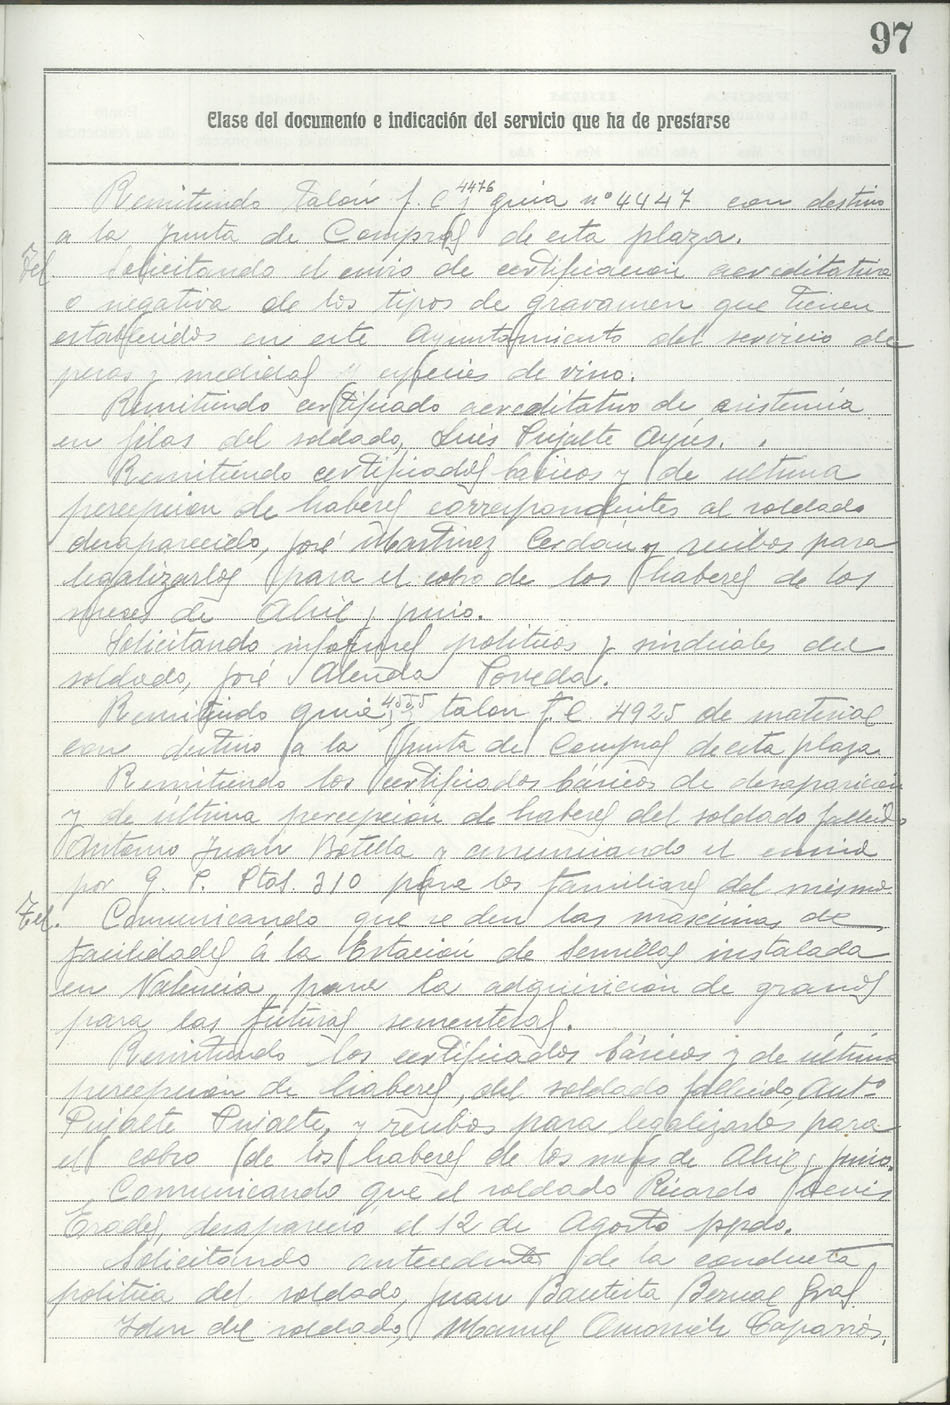 97
Clase del documento e indicación del servicio que ha de prestarse
Remitiendo talón f. c. 4476 y guia nº 4447 con destino
a la Junta de Compras de esta plaza.
Tel. Solicitando el envio de certificacion acreditativa
o negativa de los tipos de gravamen que tienen
establecidos en este Ayuntamiento del servicio de
pesas y medidas y especies de vino.
Remitiendo certificado acreditativo de existencia
en filas del soldado, Luis Pujalte Ayús.
Remitiendo certificados básicos y de ultima
percepcion de haberes correspondientes al soldado
desaparecido, José Martinez Cerdán y recibos para
legalizarlos para el cobro de los haberes de los
meses de Abril y junio.
Solicitando informes politicos y sindicales del
soldado, José Alenda Poveda.
Remitiendo guia 4555 y talon f. c. 4925 de material
con destino a la Junta de Compras de esta plaza
Remitiendo los certificados básicos de desaparicion
y de última percepcion de haberes del soldado fallecido
Antonio Juan Botella y anunciando el envio
por G. P. Ptas. 310 para los familiares del mismo.
Tel. Comunicando que se den las maximas de
facilidades á la Estación de Semillas instalada
en Valencia para la adquisicion de granos
para las futuras sementeras.
Remitiendo los certificados básicos y de última
percepcion de haberes, del soldado fallecido Antº
Pujalte Pujalte, y recibos para legalizarlos para
el cobro de los haberes de los meses de Abril y junio.
Comunicando que el soldado Ricardo
Erades, desapareció el 12 de Agosto ppdo.
Solicitando antecedentes de la conducta
politica del soldado, Juan Bautista Bernal Gras.
Idem del soldado, Manuel Caparrós.